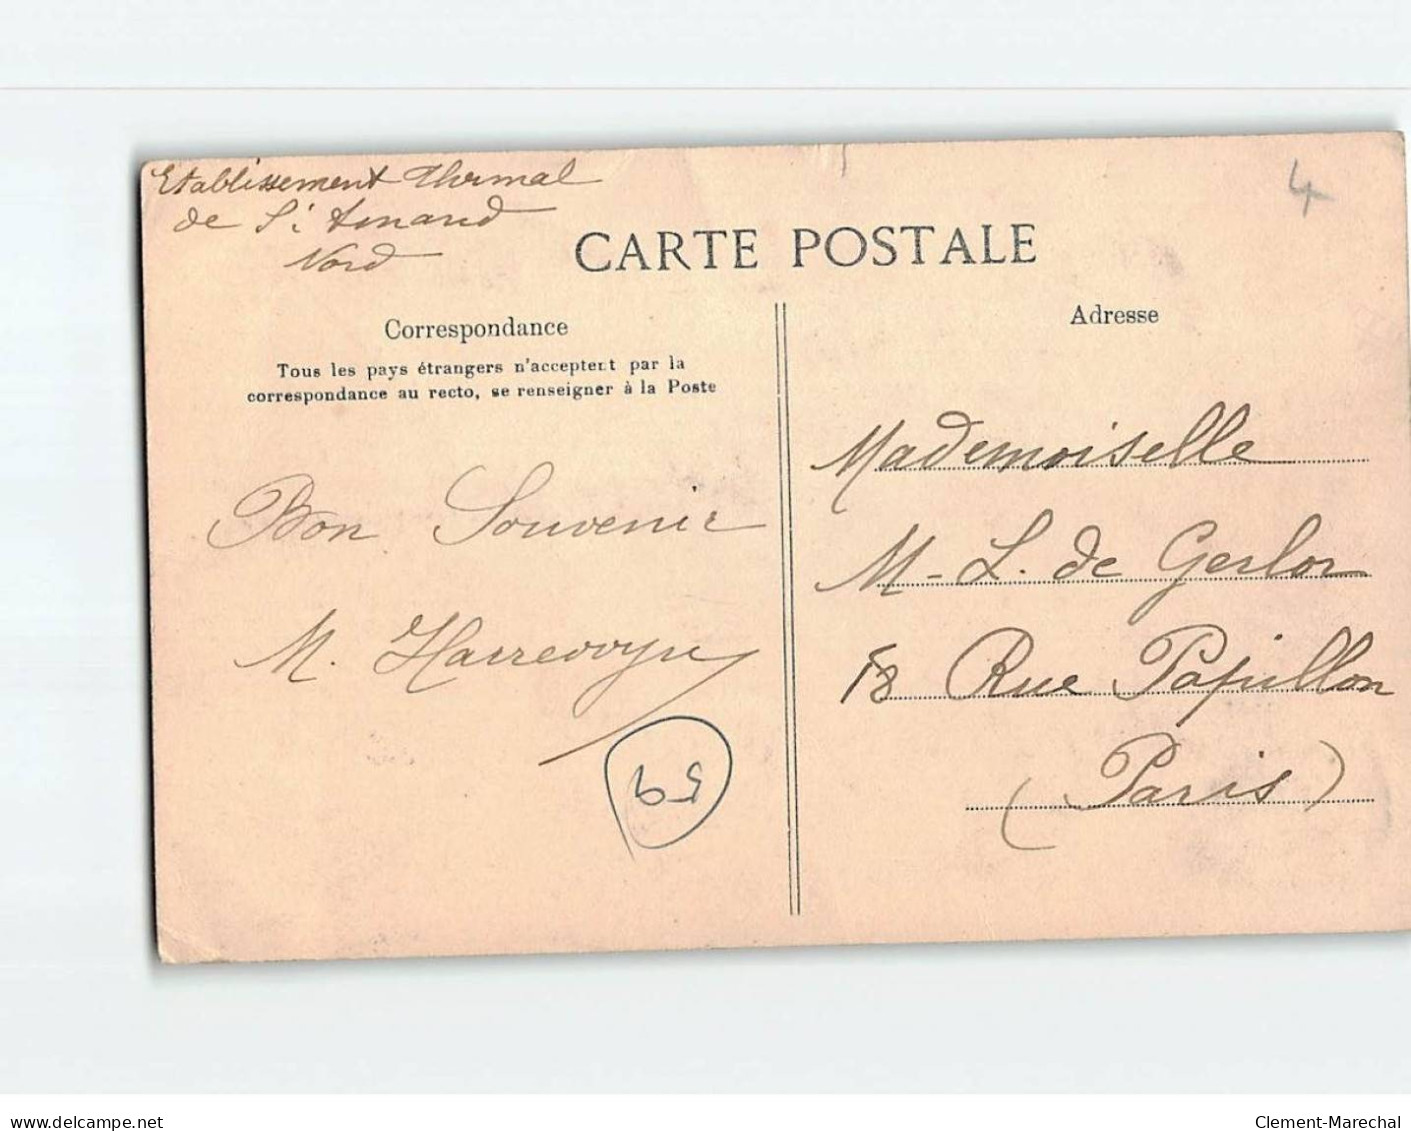 Etablissement Thermal
de St Amand
Nord
4
CARTE POSTALE
Correspondance
Tous les pays étrangers n'acceptent par la
correspondance au recto, se renseigner à la Poste
Bon Souvenir
M.
59
Adresse
Mademoiselle
M-L. de Gerlor
18 Rue Papillon
(Paris)
www.delcampe.net
Clement-Marechal